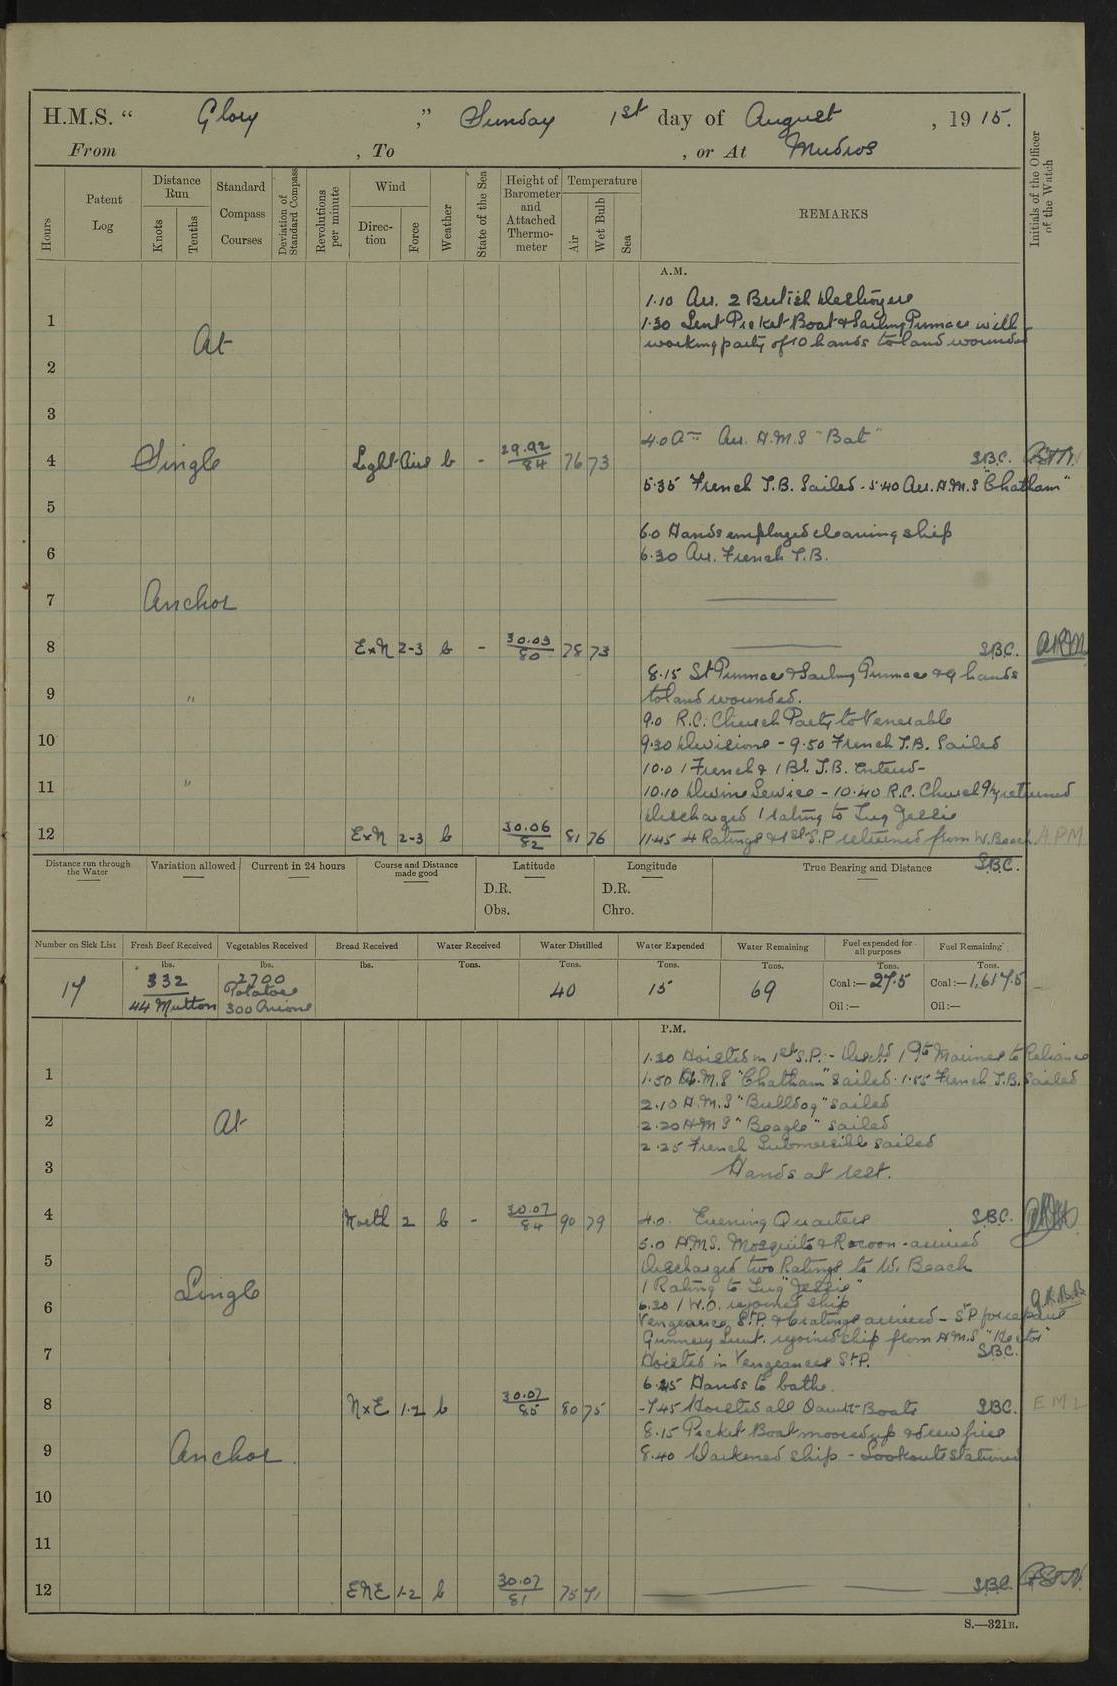 H.M.S. “ Glory ,” Sunday 1st day of August , 1915.
From , To , or At Mudros
Hours
Patent Log
Distance Run
Knots
Tenths
Standard Compass Courses
Deviation of Standard Compass
Revolutions per minute
Wind
Direction
Force
Weather
State of the Sea
Height of Barometer and Attached Thermometer
Temperature
Air
Wet Bulb
Sea
REMARKS
Initials of the Officer of the Watch
A.M.
1.10 Arr. 2 British Destroyers
1 1.30 Sent Picket Boat & Sailing Pinnace with
At working party of 10 hands to land wounded
2
3
4.0 Arr. H.M.S "Bat"
4 Single Light Airs b - 29.92/84 76 73 S.B.C.
5.35 French T.B. Sailed - 5.40 Arr. H.M.S "Chatham"
5
6.0 Hands employed cleaning ship
6 6.30 Arr. French T.B.
7 Anchor
8 ExN 2-3 b - 30.03/80 78 73 S.B.C.
8.15 St Pinnace & Sailing Pinnace & 9 hands
9 " to land wounded.
9.0 R.C. Church Party to Venerable
10 9.30 Divisions - 9.50 French T.B. Sailed
10.0 1 French & 1 Br. T.B. Entered-
11 " 10.10 Divine Service - 10.40 R.C. Church Pty returned
Discharged 1 rating to Tug Jessie
12 ExN 2-3 b 30.06/82 81 76 11.45 4 Ratings & 1st S.P returned from W. Beach. A P M
S.B.C.
Distance run through the Water
Variation allowed
Current in 24 hours
Course and Distance made good
Latitude
D.R.
Obs.
Longitude
D.R.
Chro.
True Bearing and Distance
Number on Sick List
Fresh Beef Received
Vegetables Received
Bread Received
Water Received
Water Distilled
Water Expended
Water Remaining
Fuel expended for all purposes
Fuel Remaining
lbs. lbs. lbs. Tons. Tons. Tons. Tons. Tons. Tons.
17 332 2700 Potatoes 40 15 69 Coal:— 27.5 Coal:— 1,617.5
44 Mutton 300 Onions Oil:— Oil:—
P.M.
1.30 Hoisted in 1st S.P. - Disch. 1 Marines to Reliance
1 1.50 H.M.S "Chatham" sailed. 1.55 French T.B. Sailed
2.10 H.M.S "Bulldog" sailed
2 At 2.20 H M S "Beagle" sailed
2.25 French Submersible sailed
3 Hands at rest.
4 North 2 b - 30.07/84 90 79 4.0. Evening Quarters S.B.C.
5.0 H.M.S. Mosquito & Racoon - arrived
5 Discharged two Ratings to W. Beach
Single 1 Rating to Tug "Jessie"
6 6.30 1 W.O. rejoined ship
Vengeance St.P. & 6 ratings arrived - S.P for repairs
Gunnery Lieut. rejoined ship from H.M.S "Hector"
7 Hoisted in Vengeances St.P. S.B.C.
6.45 Hands to bathe.
8 NxE 1-2 b 30.07/85 80 75 -7.45 Hoisted all Davit Boats S.B.C. E M L
8.15 Picket Boat moored up & drew fires
9 Anchor. 8.40 Darkened ship - Lookouts stationed
10
11
12 ENE 1-2 b 30.07/81 75 71 S.B.C.
S.—321B.